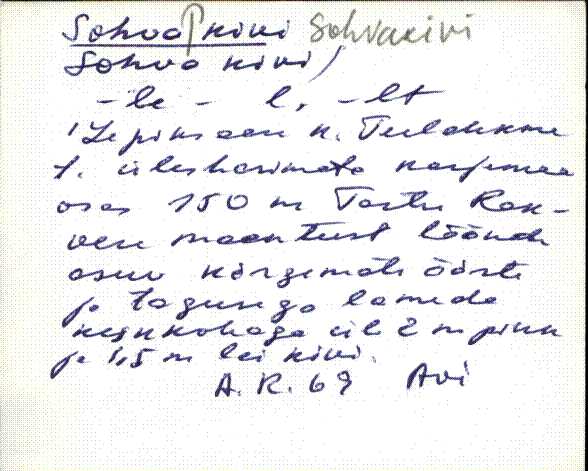 Sohva kivi Sohvakivi
Sohva kivi,
-le - l, -lt
Lepiksaare k. Teelahkme
t. ülesharimata karjamaa
osas 150 m Tartu Rak-
vere maanteest läände
asuv kõrgemate äärte
ja tagusega lameda
keskkohaga üle 2 m pikk
ja 1,5 m lai kivi.
A. R. 69 Avi